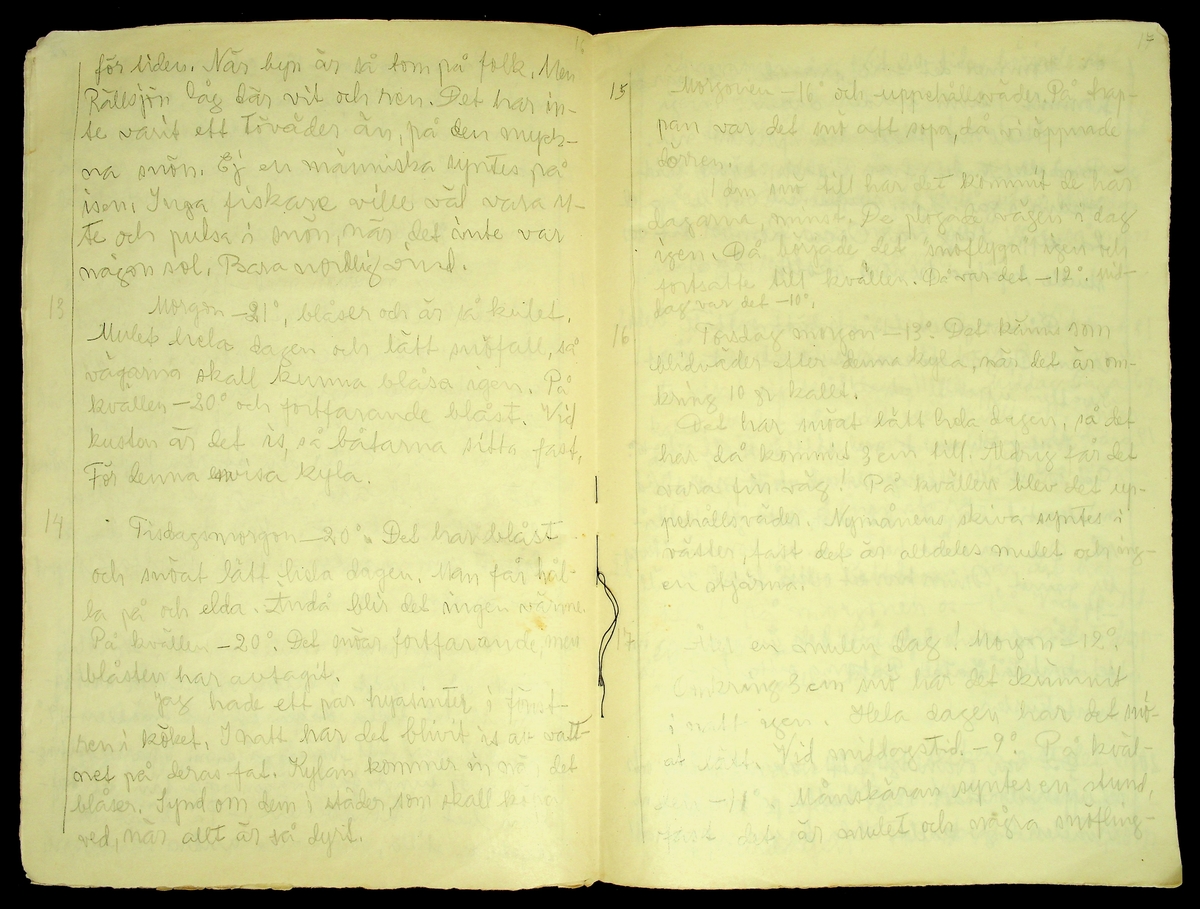 16
för tiden. När byn är så tom på folk. Men
Rällsjön låg där vit och ren. Det har in-
te varit ett töväder än, på den myck-
na snön. Ej en människa syntes på
isen. Inga fiskare ville väl vara u-
te och pulsa i snön, när det inte var
någon sol. Bara nordlig vind.
13 Morgon -21°, blåser och är så kulet.
Mulet hela dagen och lätt snöfall, så
vägarna skall kunna blåsa igen. På
kvällen -20° och fortfarande blåst. Vid
kusten är det is, så båtarna sitta fast,
För denna envisa kyla.
14. Tisdagsmorgon -20°. Det har blåst
och snöat lätt hela dagen. Man får hål-
la på och elda. Ändå blir det ingen värme.
På kvällen -20°. Det snöar fortfarande, men
blåsten har avtagit.
Jag hade ett par hyasinter i fönst-
ren i köket. I natt har det blivit is av vatt-
net på deras fat. Kylan kommer in när det
blåser. Synd om dem i städer, som skall köpa
ved, när allt är så dyrt.
17
15 Morgonen -16° och uppehållsväder. På trap-
pan var det snö att sopa, då vi öppnade
dörren.
1 dm snö till har det kommit de här
dagarna, minst. De plogade vägen i dag
igen. Då började det snöflyga igen och
fortsatte till kvällen. Då var det -12°. mid-
dag var det -10°.
16 Torsdag morgon -13°. Det känns som
blidväder efter denna kyla, när det är om-
kring 10 gr kallt.
Det har snöat lätt hela dagen, så det
har då kommit 3 cm till. Aldrig får det
vara fin väg! På kvällen blev det up-
pehållsväder. Nymånens skiva syntes i
väster, fast det är alldeles mulet och ing-
en stjärna.
17 Åter en mulen dag! Morgon -12°.
Omkring 3 cm snö har det kommit
i natt igen. Hela dagen har det snö-
at lätt. Vid middagstid. -9°. På kväl-
len -11°. Månskäran syntes en stund,
fast det är mulet och några snöfling-